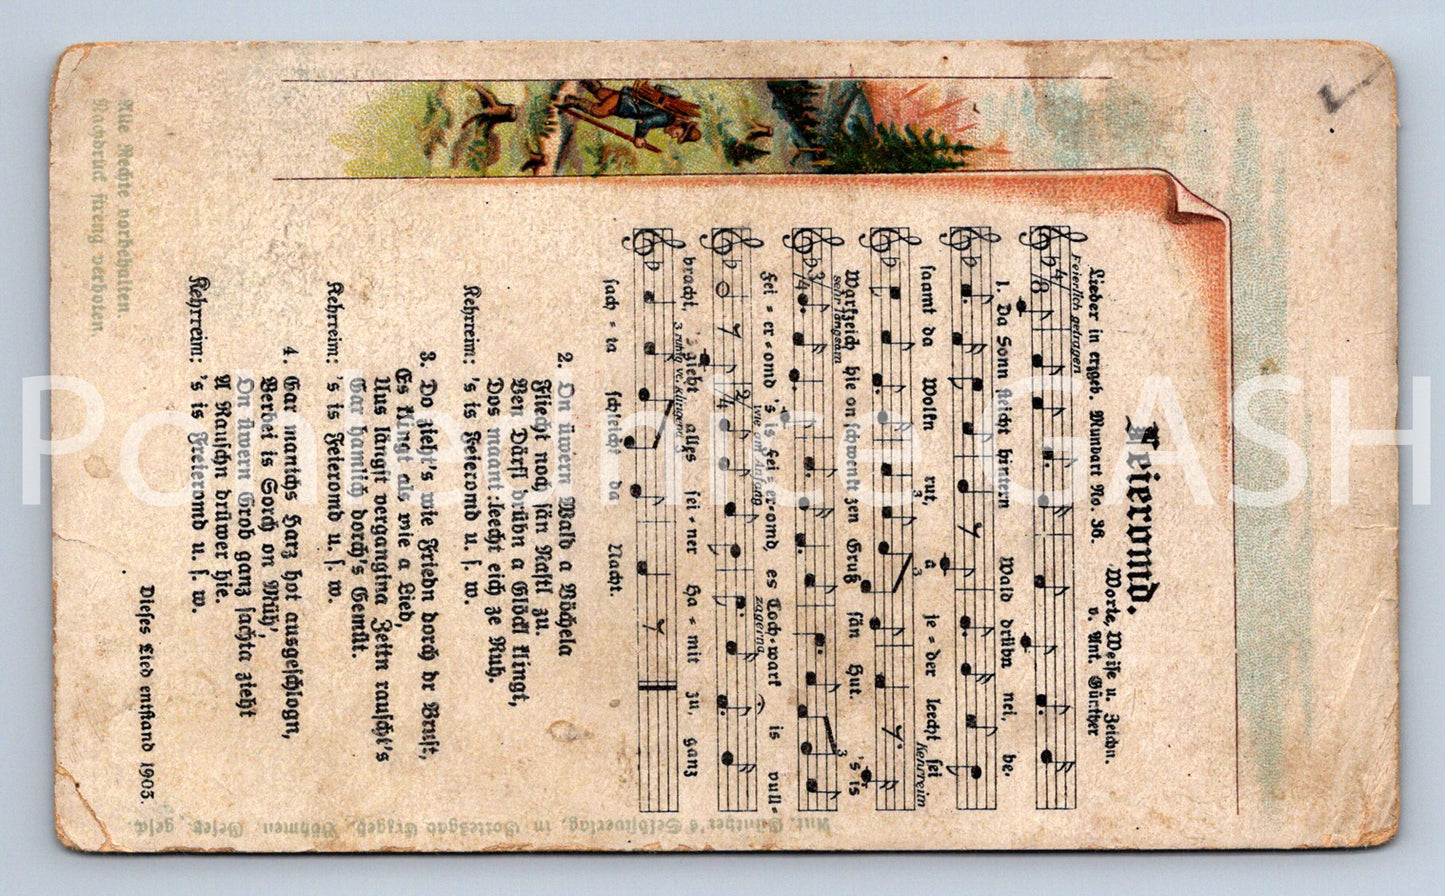 Feieromd.
Worte, Weise u. Zeichn.
Lieder in erzgeb. Mundart No. 36. v. Ant. Günther
Feierlich getragen
1. Da Sonn steicht hintern Wald drübn nei, be-
saamt da Wolkn rut, a je-der leecht sei
Kehrreim
Warkzeich hie on schwenkt zen Gruß sän Hut. 's is
sehr langsam
Fei-er-omd 's is Fei-er-omd, es Toch-wark is vull-
wie am Anfang zögernd
bracht, 's gieht alles sei-ner Ha-mit zu, ganz
sach-ta schleicht da Nacht.
2. On üwern Wald a Vöchela
Fliecht noch sän Nastl zu.
Ven Därfl drübn a Glöckl klingt,
Dos maant: leecht eich ze Ruh.
Kehrreim: 's is Feieromd u. s. w.
3. Do zieht's wie Friedn dorch dr Brust,
Es klingt als wie a Lied,
Aus längst vergangina Zeitn rauscht's
Gar hamlich dorch's Gemüt.
Kehrreim: 's is Feieromd u. s. w.
4. Gar mantchs Harz hot ausgeschlogn,
Verbei is Sorch on Müh',
On üwern Grob ganz sachta zieht
A Rauschn drüwer hie.
Kehrreim: 's is Freieromd u. s. w.
Dieses Lied entstand 1903.
Alle Rechte vorbehalten
Nachdruck streng verboten
Ant. Günther's Selbstverlag, in Gottesgab Erzgeb. Böhmen. Gesetz. gesch.
Pohlednice GASH